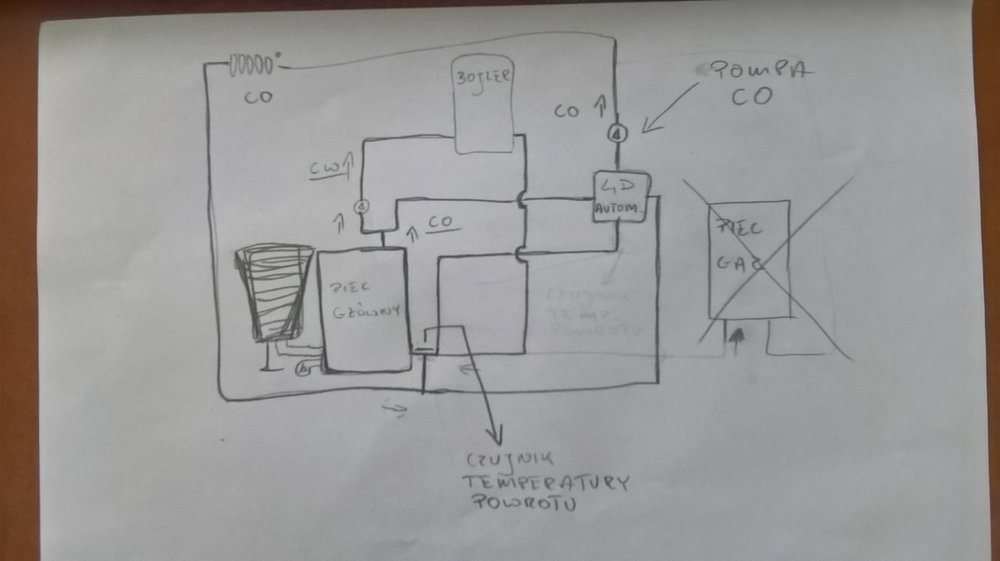 CO
BOJLER
CO
POMPA
CO
CW
CO
4D
AUTOM.
PIEC
GAZ
PIEC
GŁÓWNY
CZUJNIK
TEMPERATURY
POWROTU